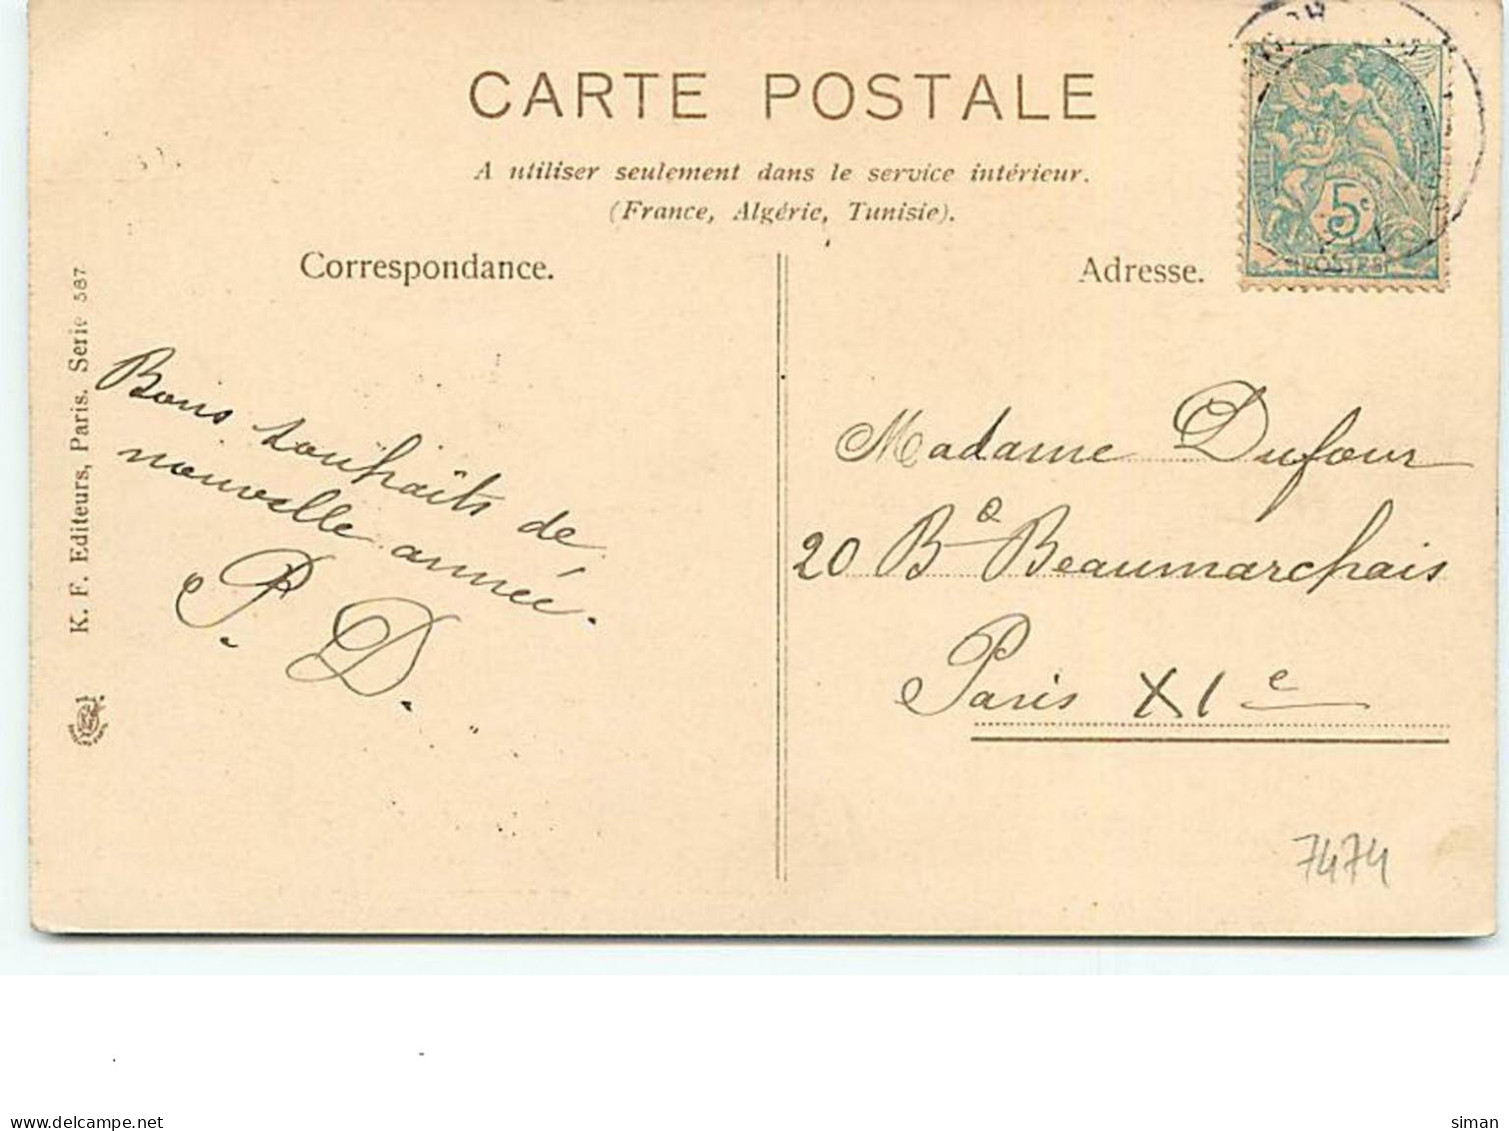 CARTE POSTALE
A utiliser seulement dans le service intérieur.
(France, Algérie, Tunisie).
Correspondance.
Adresse.
K. F. Editeurs, Paris. Serie 587
Bons souhaits de
nouvelle année.
P. D.
5c
POSTES
Madame Dufour
20 Bd Beaumarchais
Paris XIe
7474
www.delcampe.net
siman